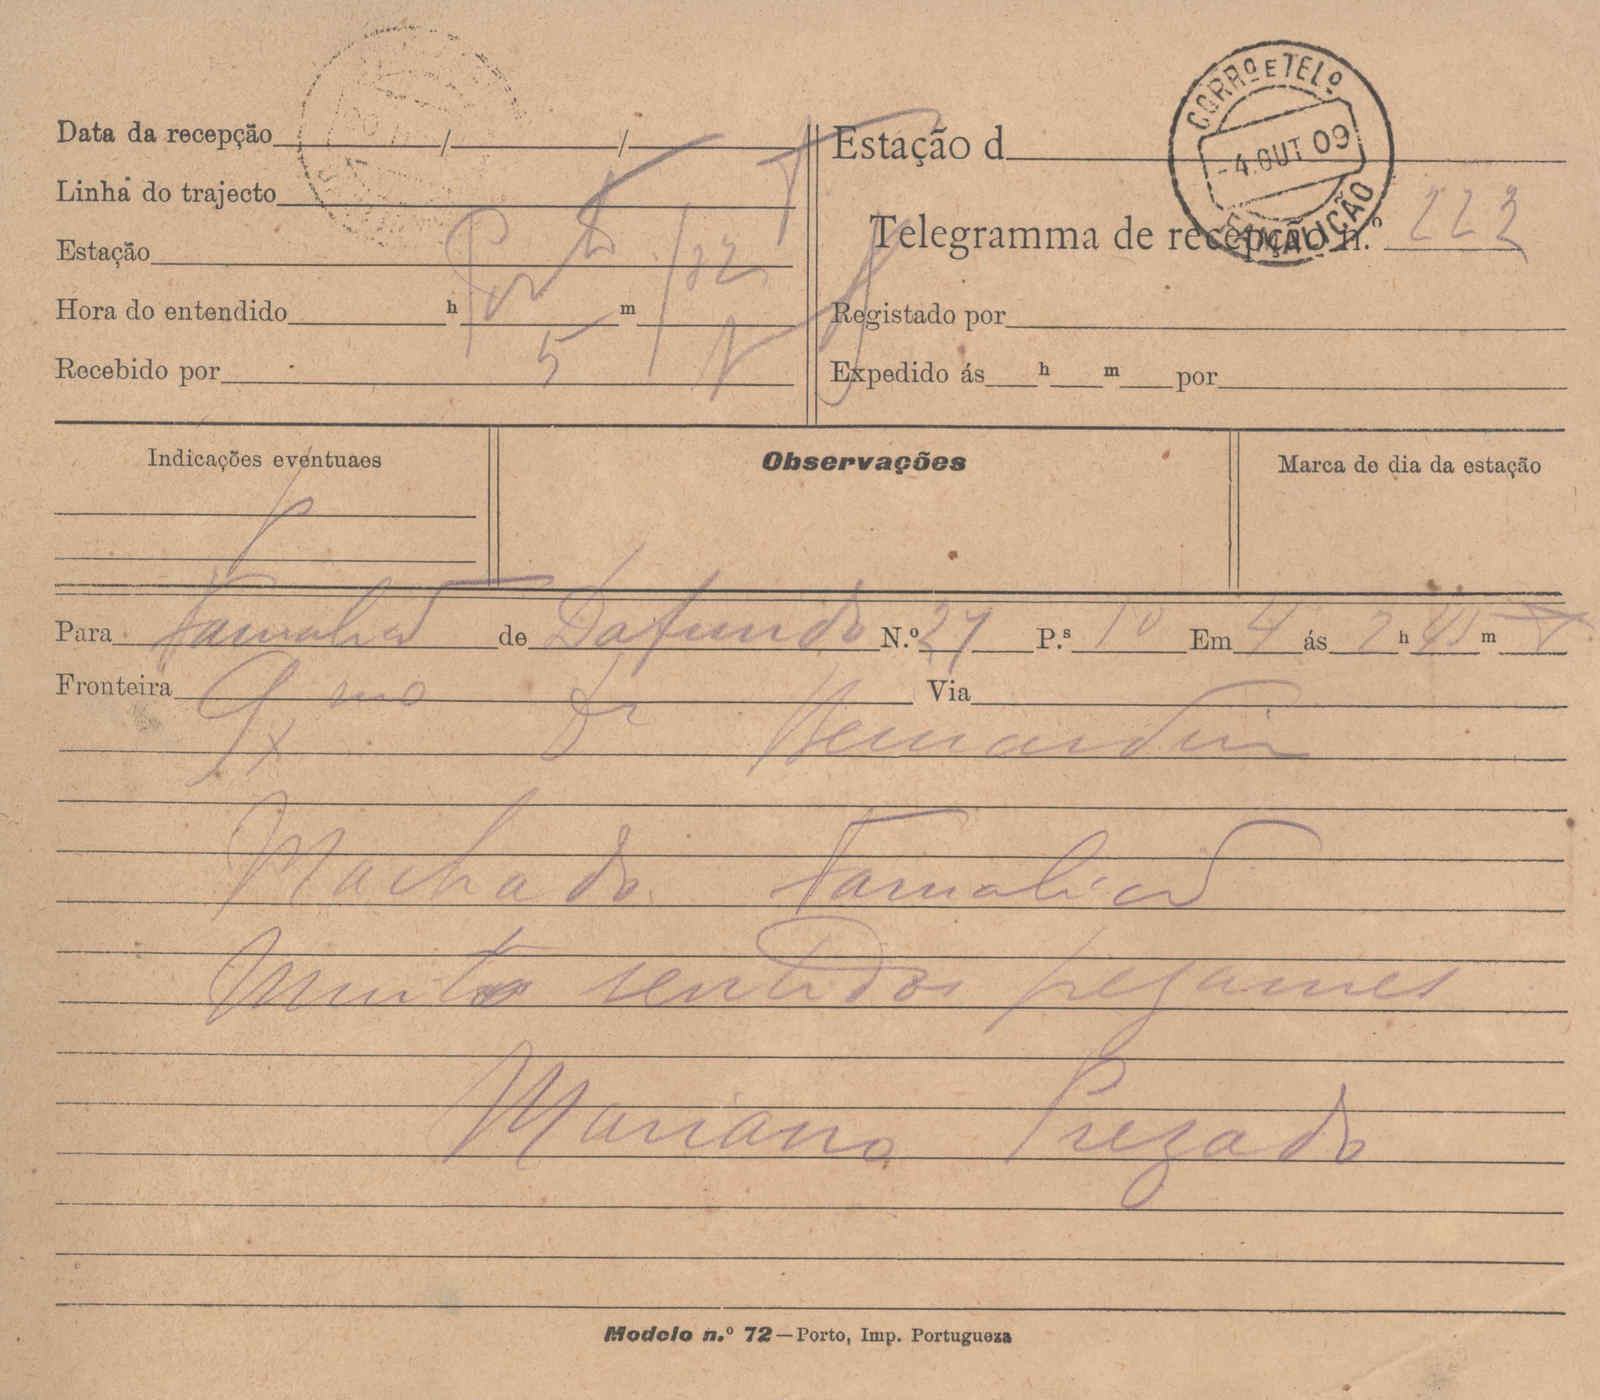 CORRº E TELº
-4.OUT 09
FAMALICÃO
Data da recepção / /
Linha do trajecto
Estação Porto
Hora do entendido h m
5
Recebido por
Estação d
Telegramma de recepção n.º 223
Registado por
Expedido ás h m por
Indicações eventuaes
Observações
Marca de dia da estação
Para Famalicão de Dafundo N.º 27 P.s 10 Em 4 ás 7 h 45 m T
Fronteira Via
Exmo Dr Bernardino
Machado Famalicão
Muito sentidos pezames
Mariano Prezado
Modelo n.º 72—Porto, Imp. Portugueza